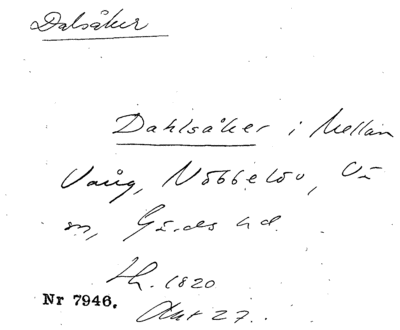 Dalsåker
Dahlsåker i Mellan
Vång, Nöbbelöv, Vä
sn, Gärds hd.
Lh. 1820
Akt 27.
Nr 7946.